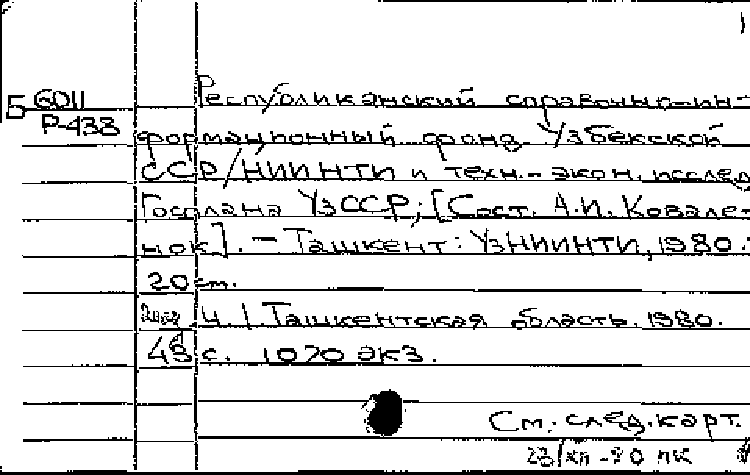 Б 6011
Р-433
Республиканский справочно-ин-
формационный фонд Узбекской
ССР/НИИНТИ и техн.-экон. исслед
Госплана УзССР; [Сост. А.И. Ковале-
нок]. – Ташкент: УзНИИНТИ, 1980.-
20 см.
Ч. 1. Ташкентская область. 1980.
48 с. 1070 экз.
См. след. карт.